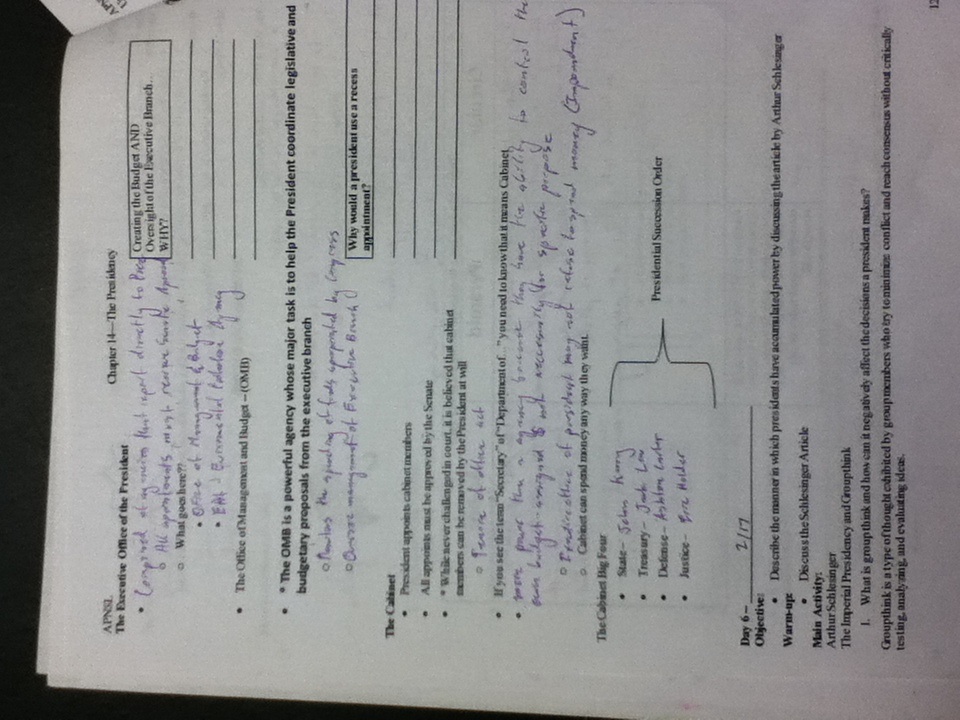 APNSL
Chapter 14—The Presidency
The Executive Office of the President
Comprised of agencies that report directly to Pres
All apointments must receive Senate Aproval
What goes here??
Office of Management & Budget
Enviromental Protection Agency
The Office of Management and Budget – (OMB)
Creating the Budget AND
Oversight of the Executive Branch…
WHY?
* The OMB is a powerful agency whose major task is to help the President coordinate legislative and
budgetary proposals from the executive branch
the spending of funds apropriated by Congress
management of Executive Branch
Why would a president use a recess
appointment?
The Cabinet
President appoints cabinet members
All appoints must be approved by the Senate
* While never challenged in court, it is believed that cabinet
members can be removed by the President at will
Tenure of office act
If you see the term "Secretary" of "Department of…" you need to know that it means Cabinet
more power than a agency because they have the ability to control the
own budget - assigned $ not necessarily for specific propose
of president may not refuse to spend money
Cabinet can spend money any way they want.
The Cabinet Big Four
State – John Kerry
Treasury – Jack Lew
Defense – Ashton Carter
Justice – Eric Holder
Presidential Succession Order
Day 6 – 2/17
Objective:
Describe the manner in which presidents have accumulated power by discussing the article by Arthur Schlesinger
Warm-up:
Discuss the Schlesinger Article
Main Activity:
Arthur Schlesinger
The Imperial Presidency and Groupthink
1. What is groupthink and how can it negatively affect the decisions a president makes?
Groupthink is a type of thought exhibited by group members who try to minimize conflict and reach consensus without critically
testing, analyzing, and evaluating ideas.
12